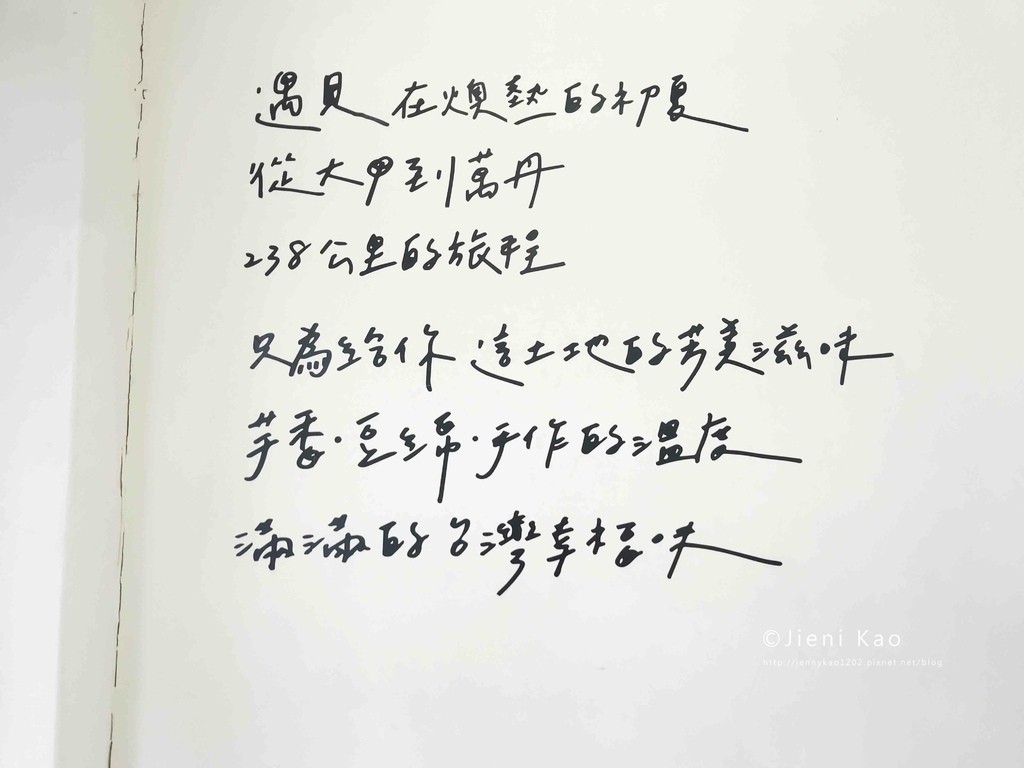 遇見 在燠熱的初夏
從大甲到萬丹
238公里的旅程
只為給你 這土地的芳美滋味
芋香·豆綿·手作的溫度
滿滿的台灣幸福味
©Jieni Kao
http://jennykao1202.pixnet.net/blog